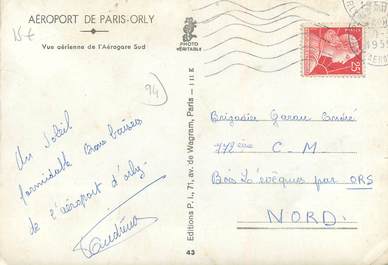 AÉROPORT DE PARIS-ORLY
15 €
Vue aérienne de l'Aérogare Sud
PHOTO
VÉRITABLE
94
25
Un Soleil
formidable Bons baisers
de l'aéroport d'orly.
Editions P. I., 71, av. de Wagram, Paris - III E
43
Brigadier Garau André
772ème C - M
Bois L'evêques par ORS
NORD.